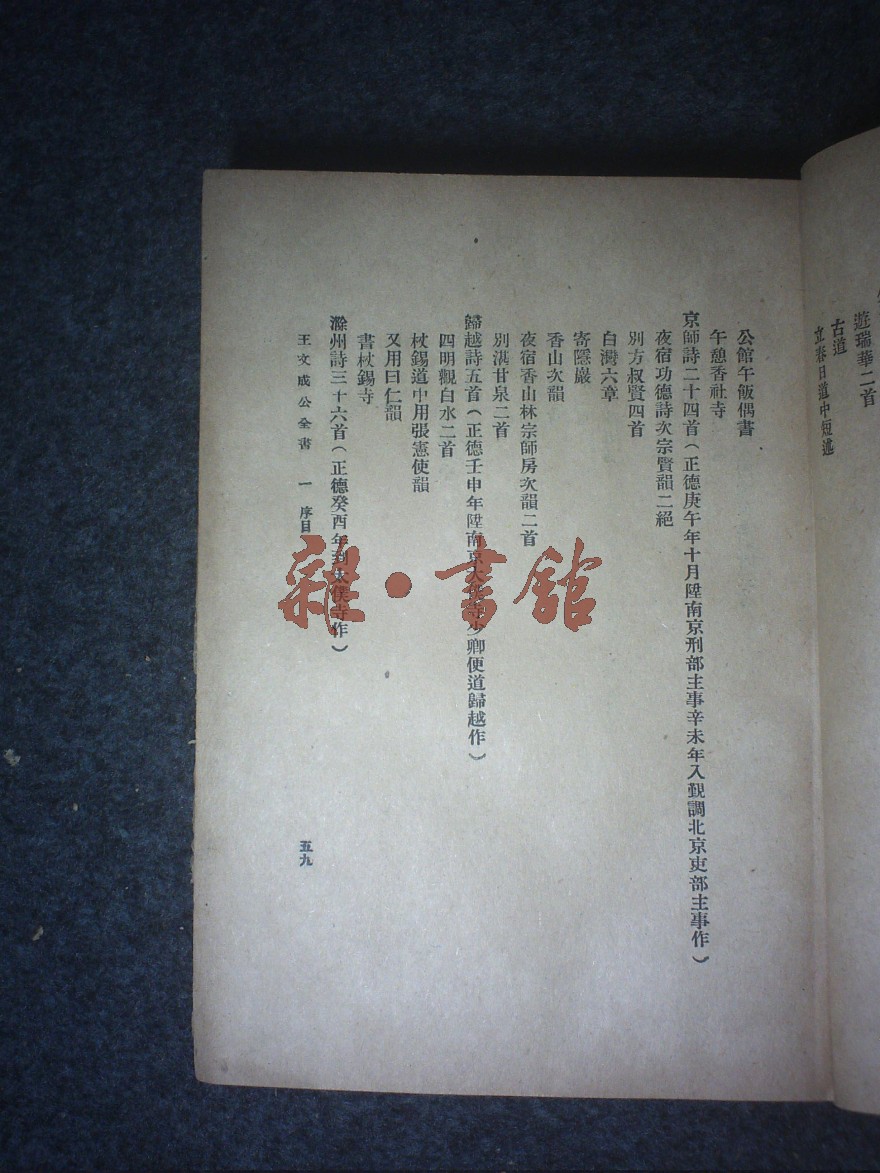 遊瑞華二首
古道
立春日道中短述
公館午飯偶書
午憩香社寺
京師詩二十四首（正德庚午年十月陞南京刑部主事辛未年入覲調北京吏部主事作）
夜宿功德詩次宗賢韻二絕
別方叔賢四首
白灣六章
寄隱巖
香山次韻
夜宿香山林宗師房次韻二首
別湛甘泉二首
歸越詩五首（正德壬申年陞南京太僕寺少卿便道歸越作）
四明觀白水二首
杖錫道中用張憲使韻
又用曰仁韻
書杖錫寺
滁州詩三十六首（正德癸酉年到太僕寺作）
王文成公全書 一 序目
五九
雜·書館